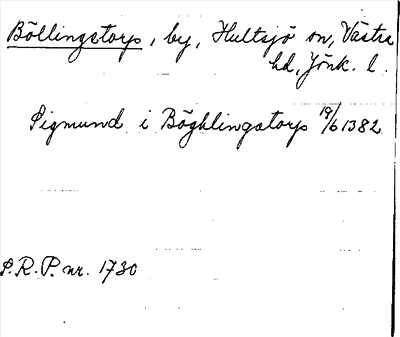 Böllingstorp, by, Hultsjö sn, Västra
hd, Jönk. l.
Sigmund i Böghlingstorp 19/6 1382
S.R.P. nr. 1730